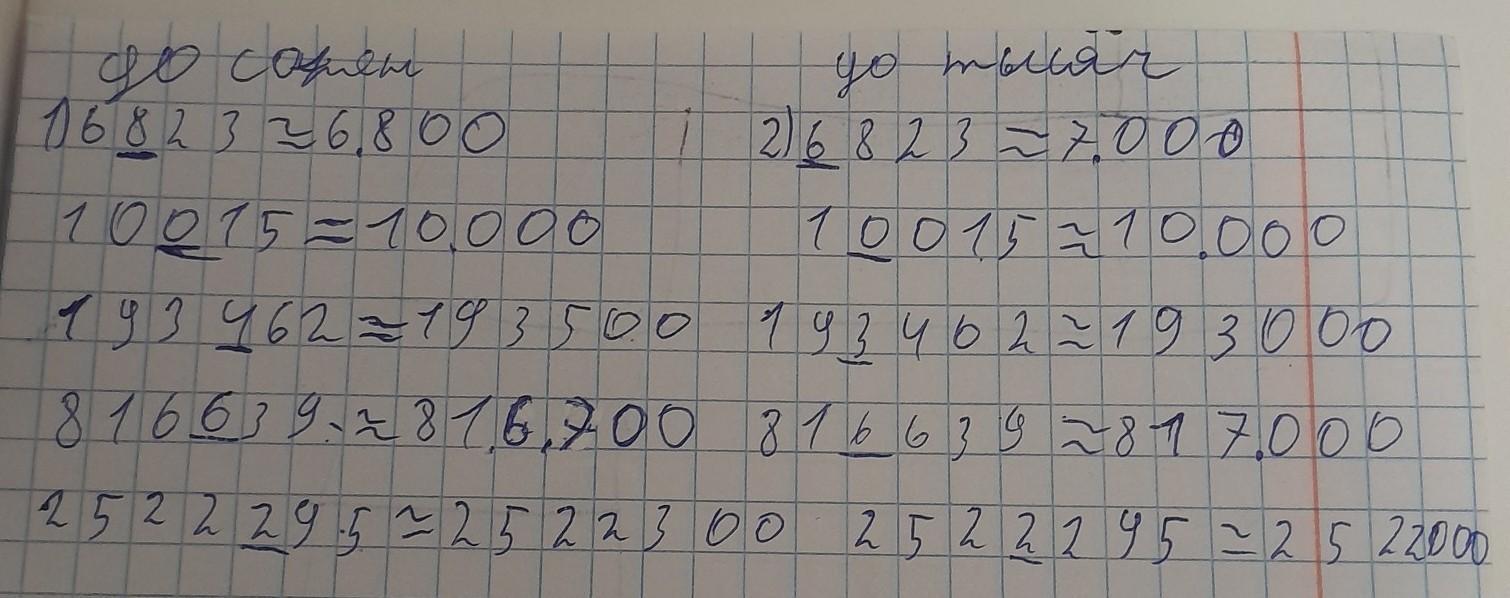 до сотен до тысяч
1) 6823 ≈ 6.800 2) 6823 ≈ 7.000
10015 ≈ 10.000 10015 ≈ 10.000
193462 ≈ 193500 193462 ≈ 193000
816639. ≈ 81.6.700 816639 ≈ 817.000
2522295 ≈ 2522300 2522295 ≈ 2522000